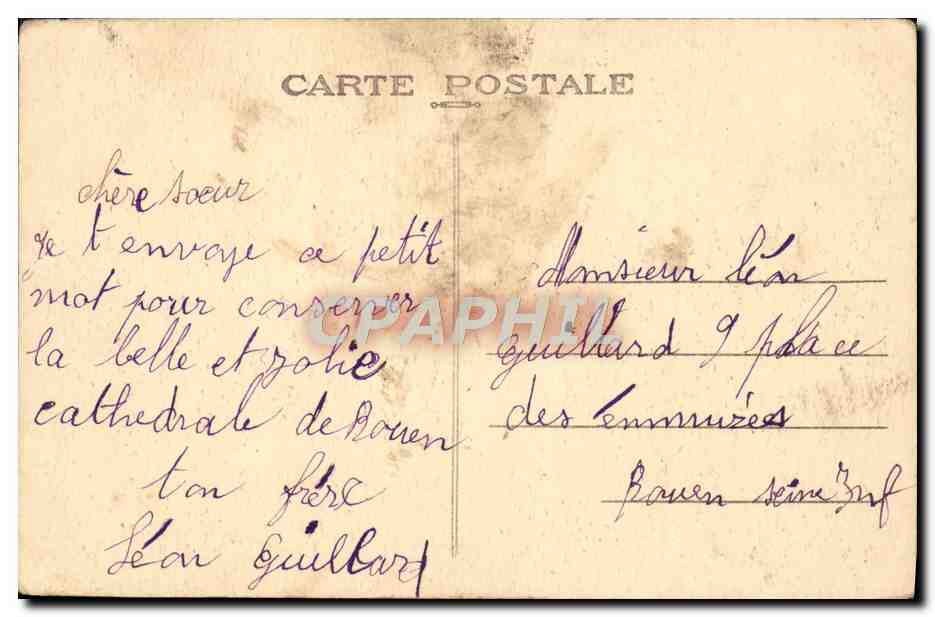 CARTE POSTALE
chère soeur
je t envoye ce petit
mot pour conserver
la belle et jolie
cathedrale de Rouen
ton frére
Léon Guillard
Monsieur Léon
Guillard 9 place
des émmurées
Rouen Seine Inf
CPAPHIL